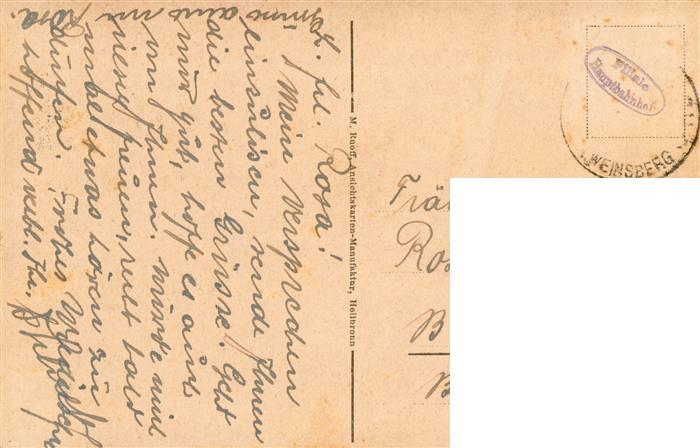 Lb. frl. Rosa!
Mein Versprechen
einzulösen, sende Ihnen
die besten Grüsse. Geht
mir gut, hoffe es auch
von Ihnen. Würde mich
riesig freuen, recht bald
etwas hören zu
dürfen. Frohes
hoffend verbl. Ihr
M. Ruoff, Ansichtskarten-Manufaktur, Heilbronn
Filiale
Hauptbahnhof
WEINSBERG
Frä
Ro
B
B